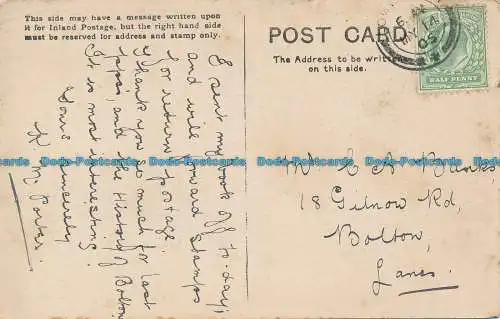 This side may have a message written upon
it for Inland Postage, but the right hand side
must be reserved for address and stamp only.
POST CARD
The Address to be written
on this side.
HALF PENNY
I sent my book off to-day,
and will forward stamps
for return postage.
Thank you so much for last
and the History of Bolton
It is most interesting.
Yours sincerely
K. M. Porter.
Mr C A Banks
18 Gilnow Rd,
Bolton,
Lancs.
Dodo-Postcards